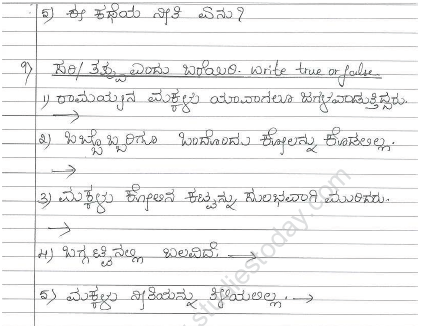 ೮) ಈ ಕಥೆಯ ನೀತಿ ಏನು?
೪) ಸರಿ/ ತಪ್ಪು ಎಂದು ಬರೆಯಿರಿ. write true or false.
೧) ರಾಮಯ್ಯನ ಮಕ್ಕಳು ಯಾವಾಗಲೂ ಜಗಳವಾಡುತ್ತಿದ್ದರು.
→
೨) ಒಬ್ಬೊಬ್ಬರಿಗೂ ಒಂದೊಂದು ಕೋಲನ್ನು ಕೊಡಲಿಲ್ಲ.
→
೩) ಮಕ್ಕಳು ಕೋಲಿನ ಕಟ್ಟನ್ನು ಸುಲಭವಾಗಿ ಮುರಿದರು.
→
೪) ಒಗ್ಗಟ್ಟಿನಲ್ಲಿ ಬಲವಿದೆ. →
೫) ಮಕ್ಕಳು ನೀತಿಯನ್ನು ತಿಳಿಯಲಿಲ್ಲ. →
studiestoday.com